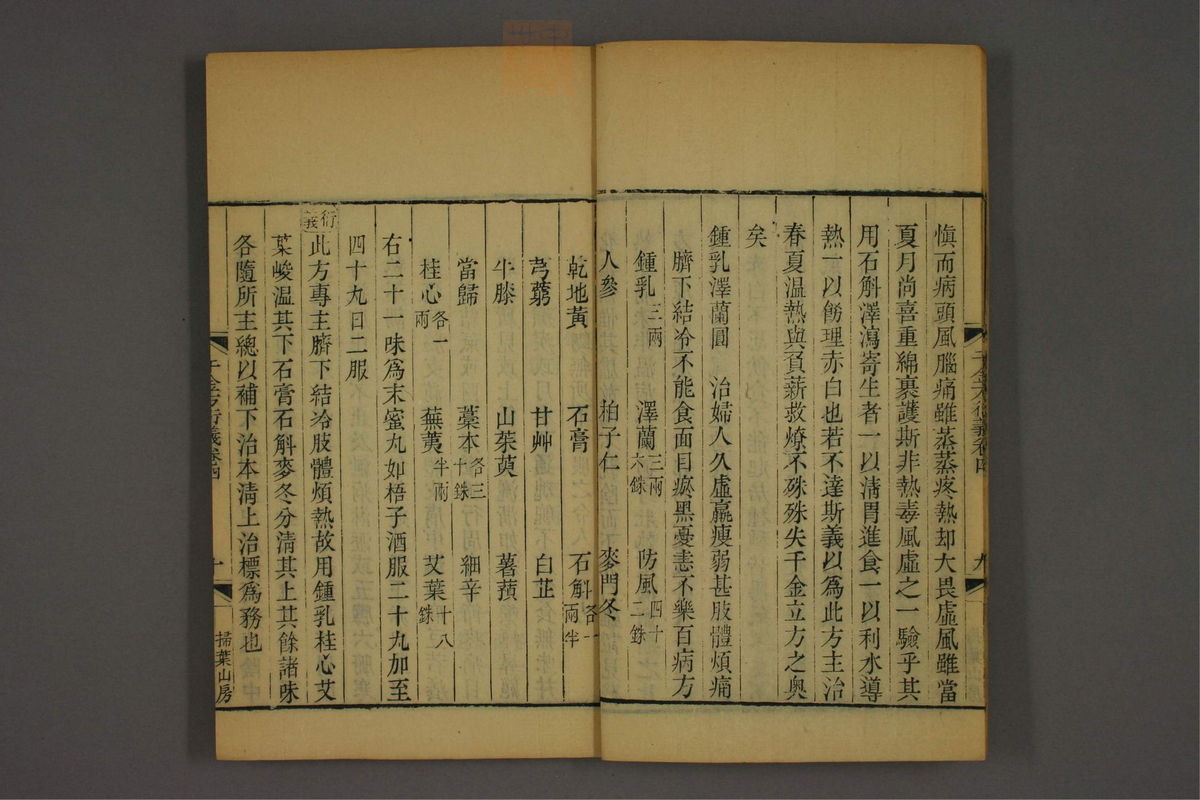 慎而病頭風腦痛雖蒸蒸疼熱却大畏虛風雖當
夏月尚喜重綿裹護斯非熱毒風虛之一驗乎其
用石斛澤瀉寄生者一以清胃進食一以利水導
熱一以飭理赤白也若不達斯義以為此方主治
春夏溫熱與負薪救燎不殊殊失千金立方之奧
矣
鍾乳澤蘭圓　治婦人久虛羸瘦弱甚肢體煩痛
臍下結冷不能食面目瘀黑憂恚不樂百病方
鍾乳三兩　澤蘭三兩六銖　防風四十二銖
人參　柏子仁　麥門冬
千金方衍義卷四　九
乾地黃　石膏　石斛各一兩半
芎藭　甘艸　白芷
牛膝　山茱萸　薯蕷
當歸　藁本各三十銖　細辛
桂心各一兩　蕪荑半兩　艾葉十八銖
右二十一味為末蜜丸如梧子酒服二十丸加至
四十九日二服
衍義此方專主臍下結冷肢體煩熱故用鍾乳桂心艾
葉峻溫其下石膏石斛麥冬分清其上其餘諸味
各隨所主總以補下治本清上治標為務也
千金方衍義卷四　十　掃葉山房